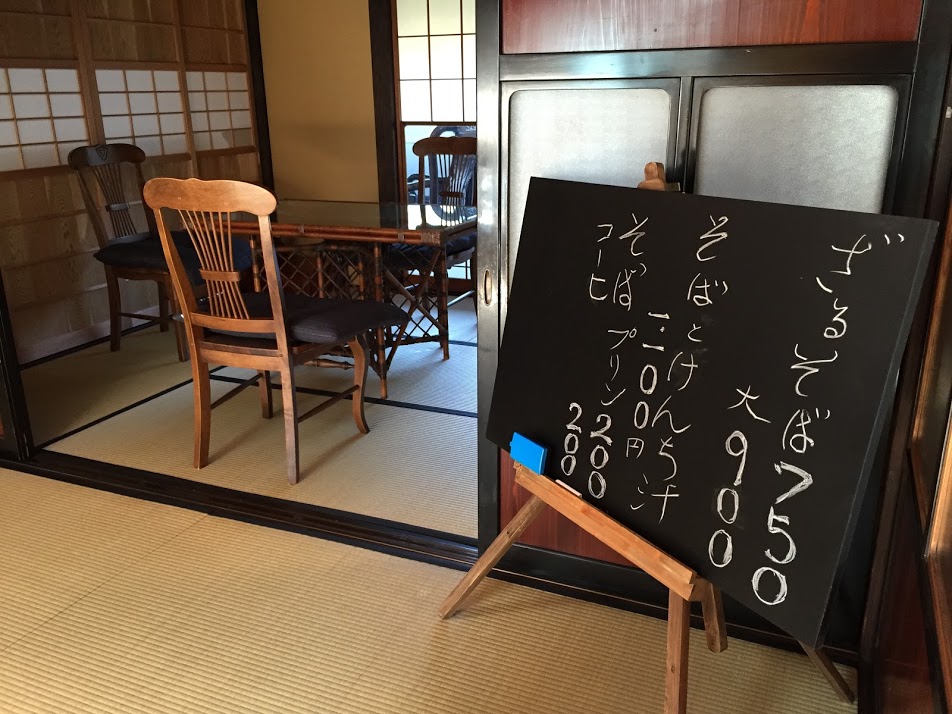 ざるそば750
大900
そばとけんち汁
一、一00円
そばプリン200
コーヒ200